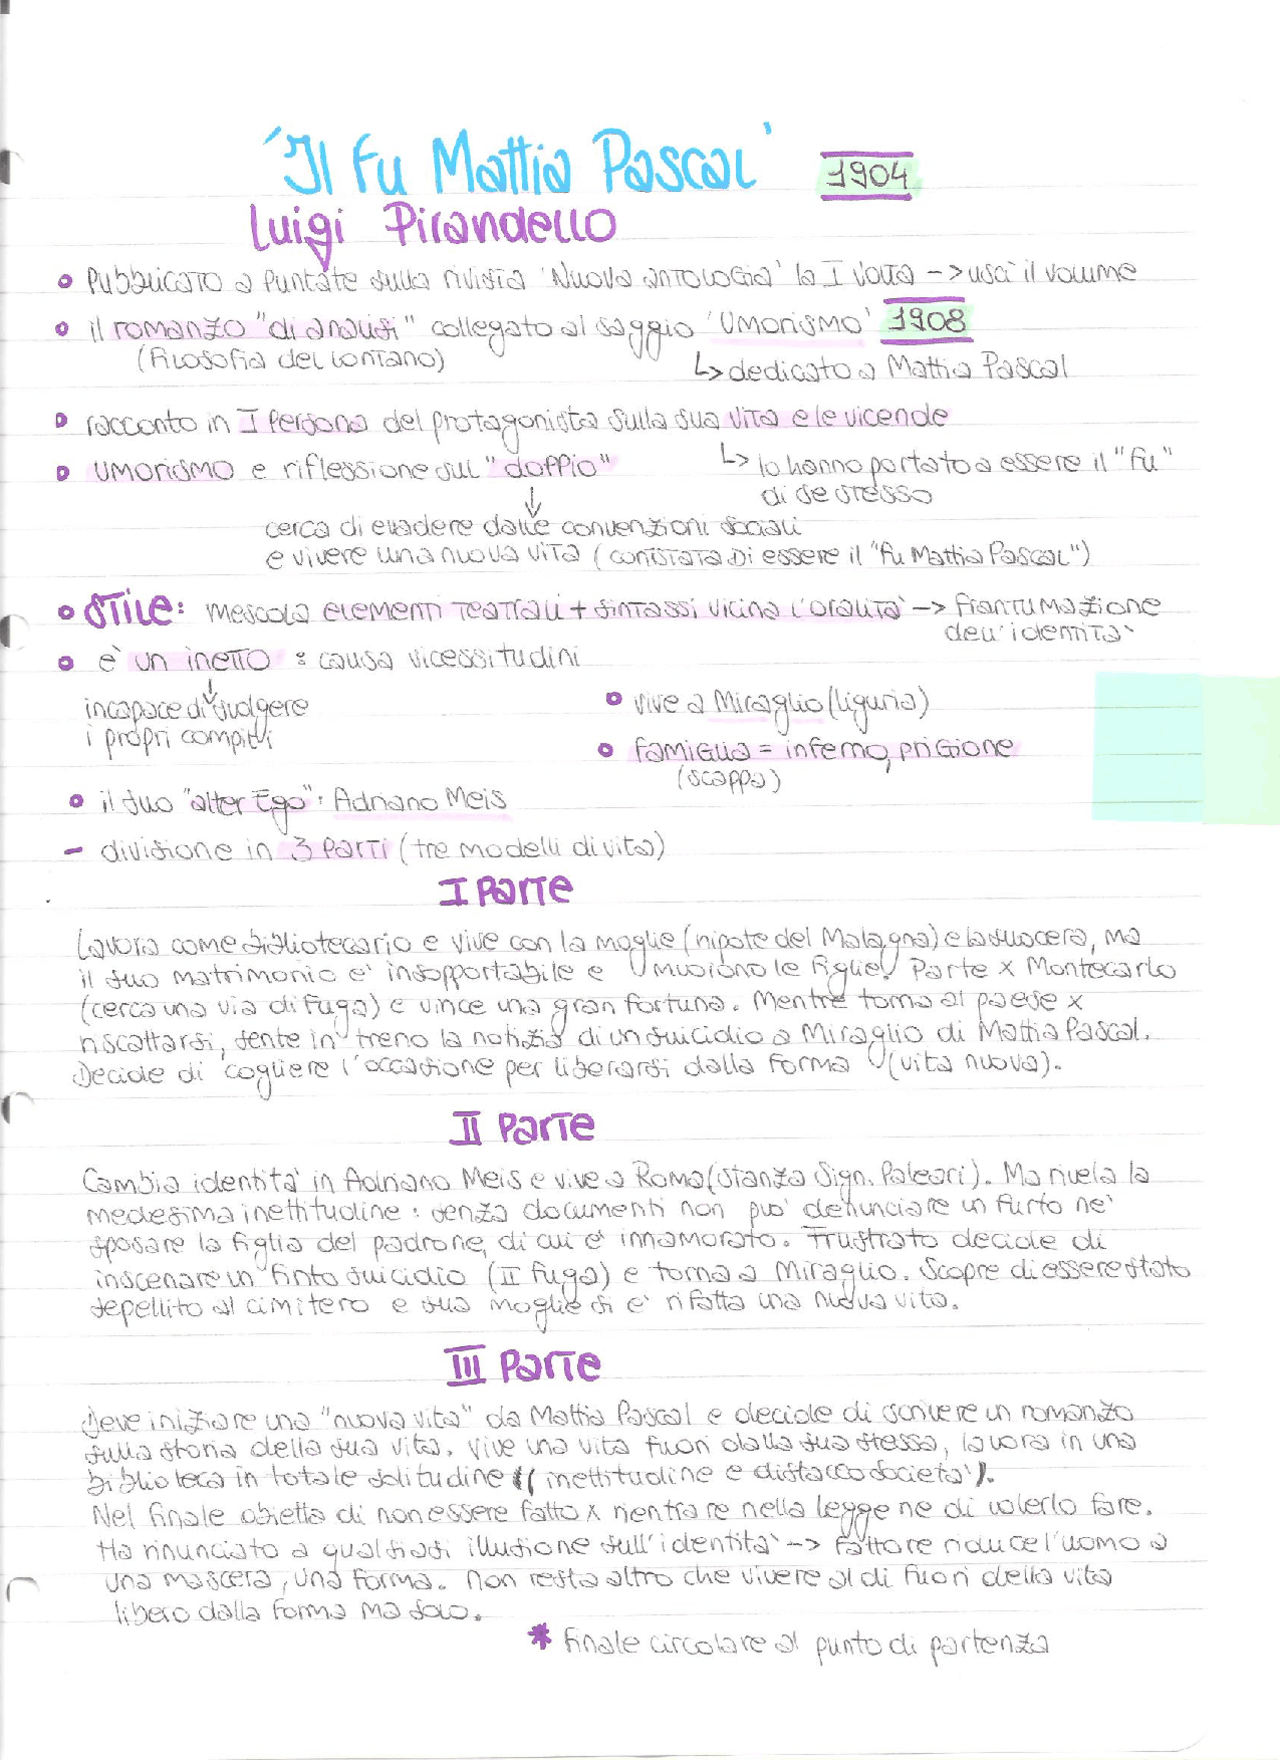 'Il Fu Mattia Pascal' 1904
Luigi Pirandello
Pubblicato a puntate sulla rivista 'Nuova antologia' la I volta -> uscì il volume
il romanzo "di analisi" collegato al saggio 'Umorismo' 1908
(filosofia del lontano)
↳ dedicato a Mattia Pascal
racconto in I persona del protagonista sulla sua vita e le vicende
umorismo e riflessione sul "doppio"
↳ lo hanno portato a essere il "fu"
di se stesso
↓
cerca di evadere dalle convenzioni sociali
e vivere una nuova vita (constata di essere il "fu Mattia Pascal")
Stile: mescola elementi teatrali + sintassi vicina l'oralità -> frantumazione
dell'identità
è un inetto : causa vicessitudini
↓
incapace di svolgere
i propri compiti
vive a Miraglio (liguria)
famiglia = inferno, prigione
(scappa)
il suo "alter Ego": Adriano Meis
- divisione in 3 parti (tre modelli di vita)
I Parte
Lavora come bibliotecario e vive con la moglie (nipote del Malagna) e la suocera, ma
il suo matrimonio e' insopportabile e muoiono le figlie. Parte x Montecarlo
(cerca una via di fuga) e vince una gran fortuna. Mentre torna al paese x
riscattarsi, sente in treno la notizia di un suicidio a Miraglio di Mattia Pascal.
Decide di cogliere l'occasione per liberarsi dalla forma (vita nuova).
II Parte
Cambia identita' in Adriano Meis e vive a Roma (stanza Sign. Paleari). Ma rivela la
medesima inettitudine : senza documenti non puo' denunciare un furto ne'
sposare la figlia del padrone, di cui e' innamorato. Frustrato decide di
inscenare un finto suicidio (II fuga) e torna a Miraglio. Scopre di essere stato
sepellito al cimitero e sua moglie si e' rifatta una nuova vita.
III Parte
Deve iniziare una "nuova vita" da Mattia Pascal e decide di scrivere un romanzo
sulla storia della sua vita. Vive una vita fuori dalla sua stessa, lavora in una
biblioteca in totale solitudine (inettitudine e distacco societa').
Nel finale obietta di non essere fatto x rientrare nella legge ne di volerlo fare.
Ha rinunciato a qualsiasi illusione sull'identita' --> fattore riduce l'uomo a
una maschera, una forma. Non resta altro che vivere al di fuori della vita
libero dalla forma ma solo.
* finale circolare al punto di partenza